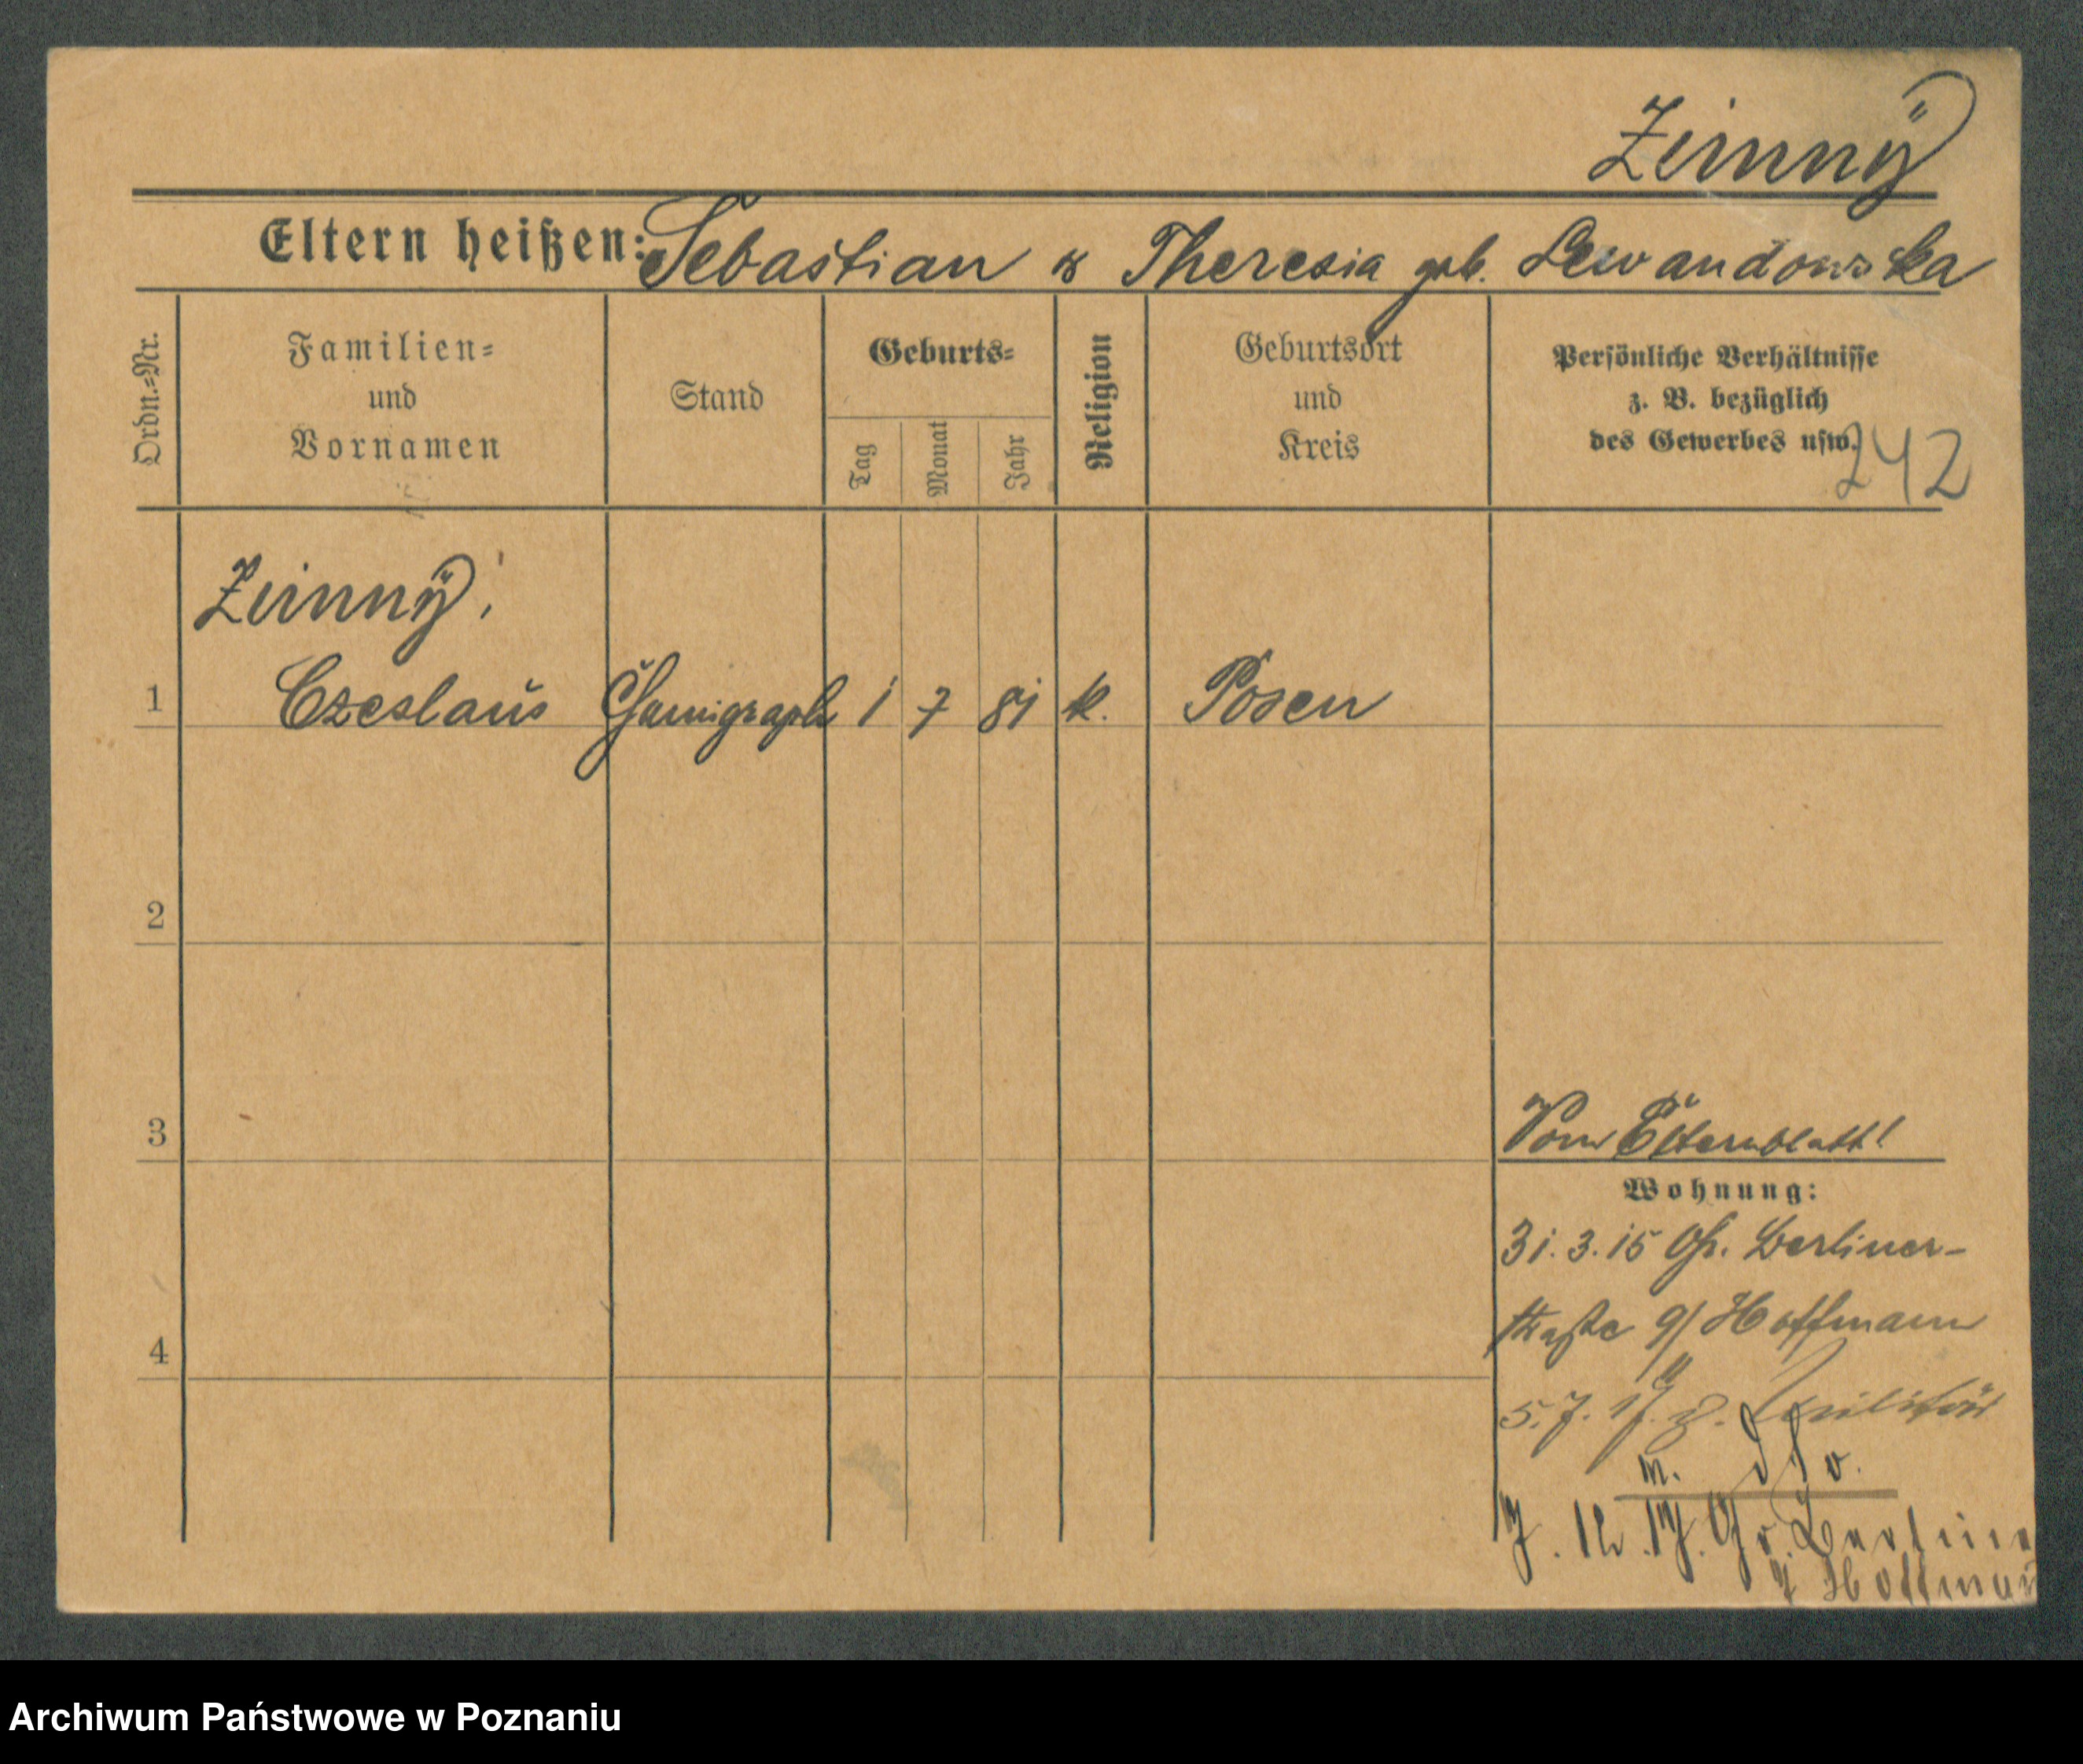 Zimny
Eltern heißen: Sebastian & Theresia geb. Lewandowska
Ordn.-Nr.
Familien-
und
Vornamen
Stand
Geburts-
Tag
Monat
Jahr
Religion
Geburtsort
und
Kreis
Persönliche Verhältnisse
z. B. bezüglich
des Gewerbes usw.
242
Zimny!
1 Czeslaus 1 7 81 k. Posen
2
3
Vom Elternblatt!
Wohnung:
31. 3. 15 Gr. Berliner-
straße 9/ Hoffmann
4
5. 7. 17. z. Militär
7. 12. 17. Gr. Berline
Hoffman
Archiwum Państwowe w Poznaniu